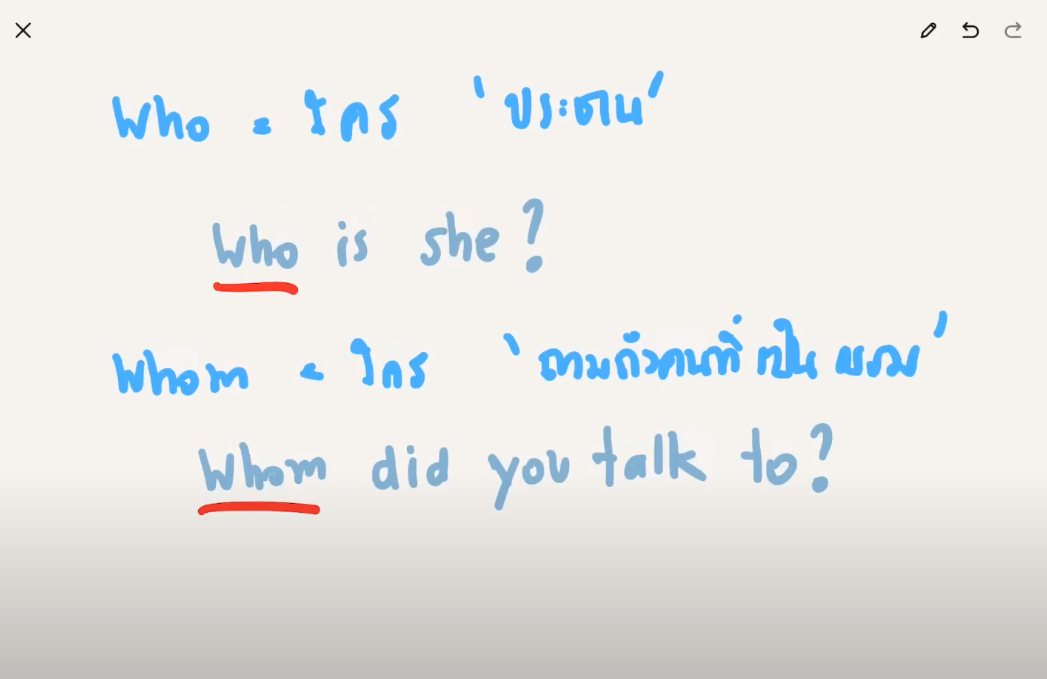 Who = ใคร 'ประธาน'
Who is she?
Whom = ใคร 'ถามถึงคนที่เป็นกรรม'
Whom did you talk to?